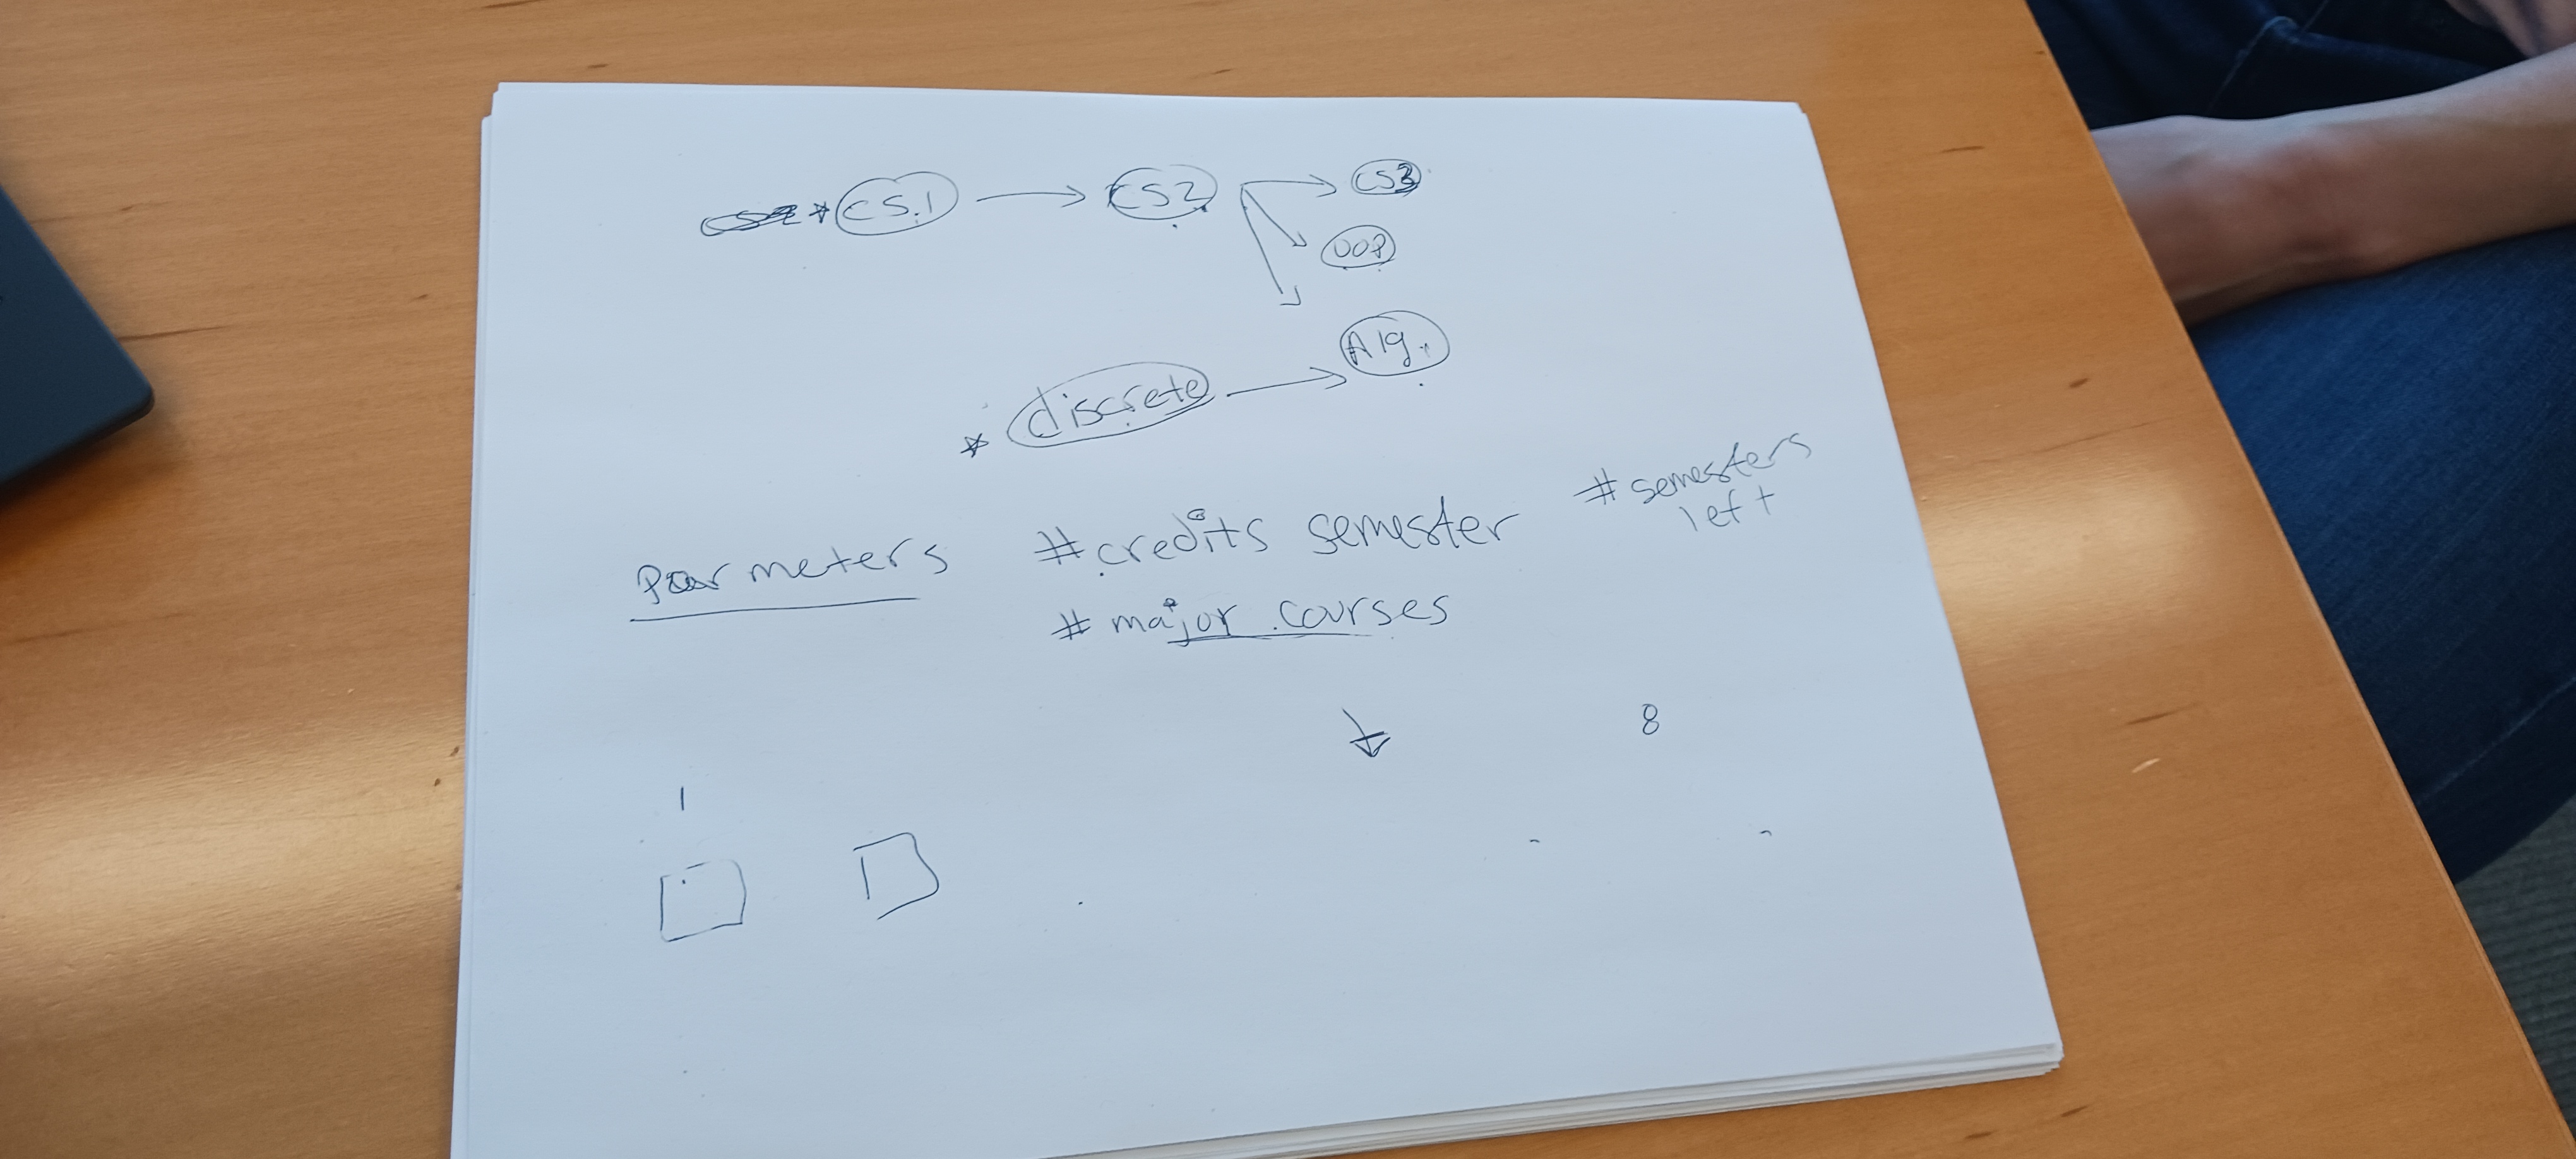 * CS1 → CS2 → CS3
OOP
* discrete → Alg.
parmeters # credits semester # semesters left
# major courses
8